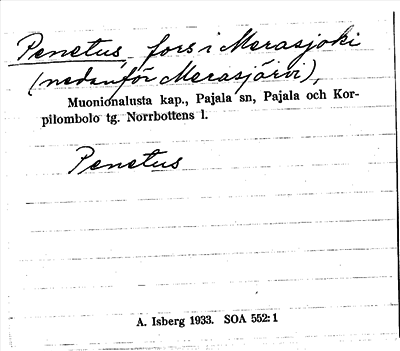 Penetus, fors i Merasjoki
(nedanför Merasjärvi),
Muonionalusta kap., Pajala sn, Pajala och Kor-
pilombolo tg. Norrbottens l.
Penetus
A. Isberg 1933. SOA 552:1